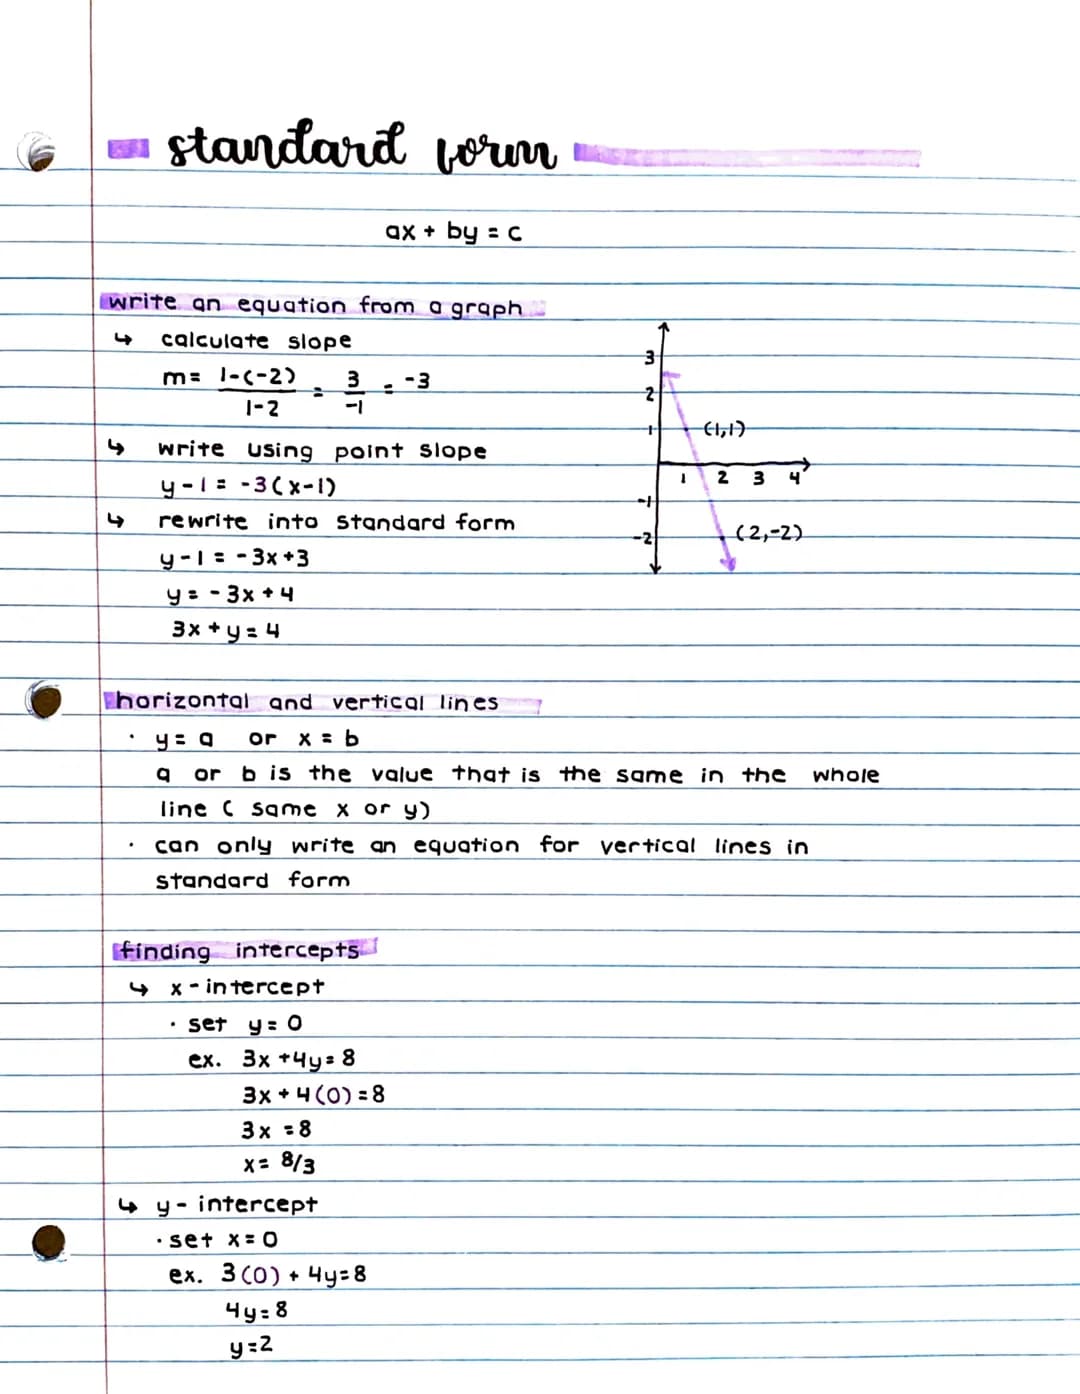 standard form
ax + by = c
write an equation from a graph
↳ calculate slope
m = 1-(-2) / 1-2 = 3 / -1 = -3
↳ write using point slope
y - 1 = -3(x-1)
↳ rewrite into standard form
y - 1 = -3x + 3
y = -3x + 4
3x + y = 4
3
2
1
(1,1)
1 2 3 4
-1
-2
(2,-2)
horizontal and vertical lines
· y = a or x = b
a or b is the value that is the same in the whole
line ( same x or y)
· can only write an equation for vertical lines in
standard form
finding intercepts
↳ x - intercept
· set y = 0
ex. 3x + 4y = 8
3x + 4(0) = 8
3x = 8
x = 8/3
↳ y - intercept
· set x = 0
ex. 3(0) + 4y = 8
4y = 8
y = 2